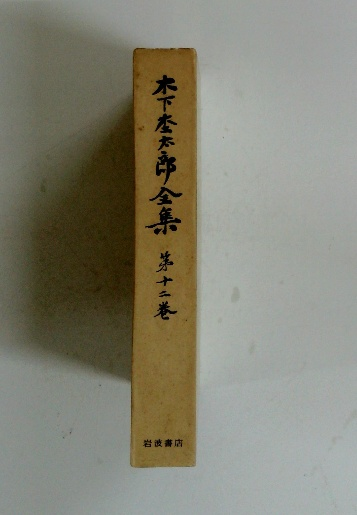 木下杢太郎全集
第十二巻
岩波書店